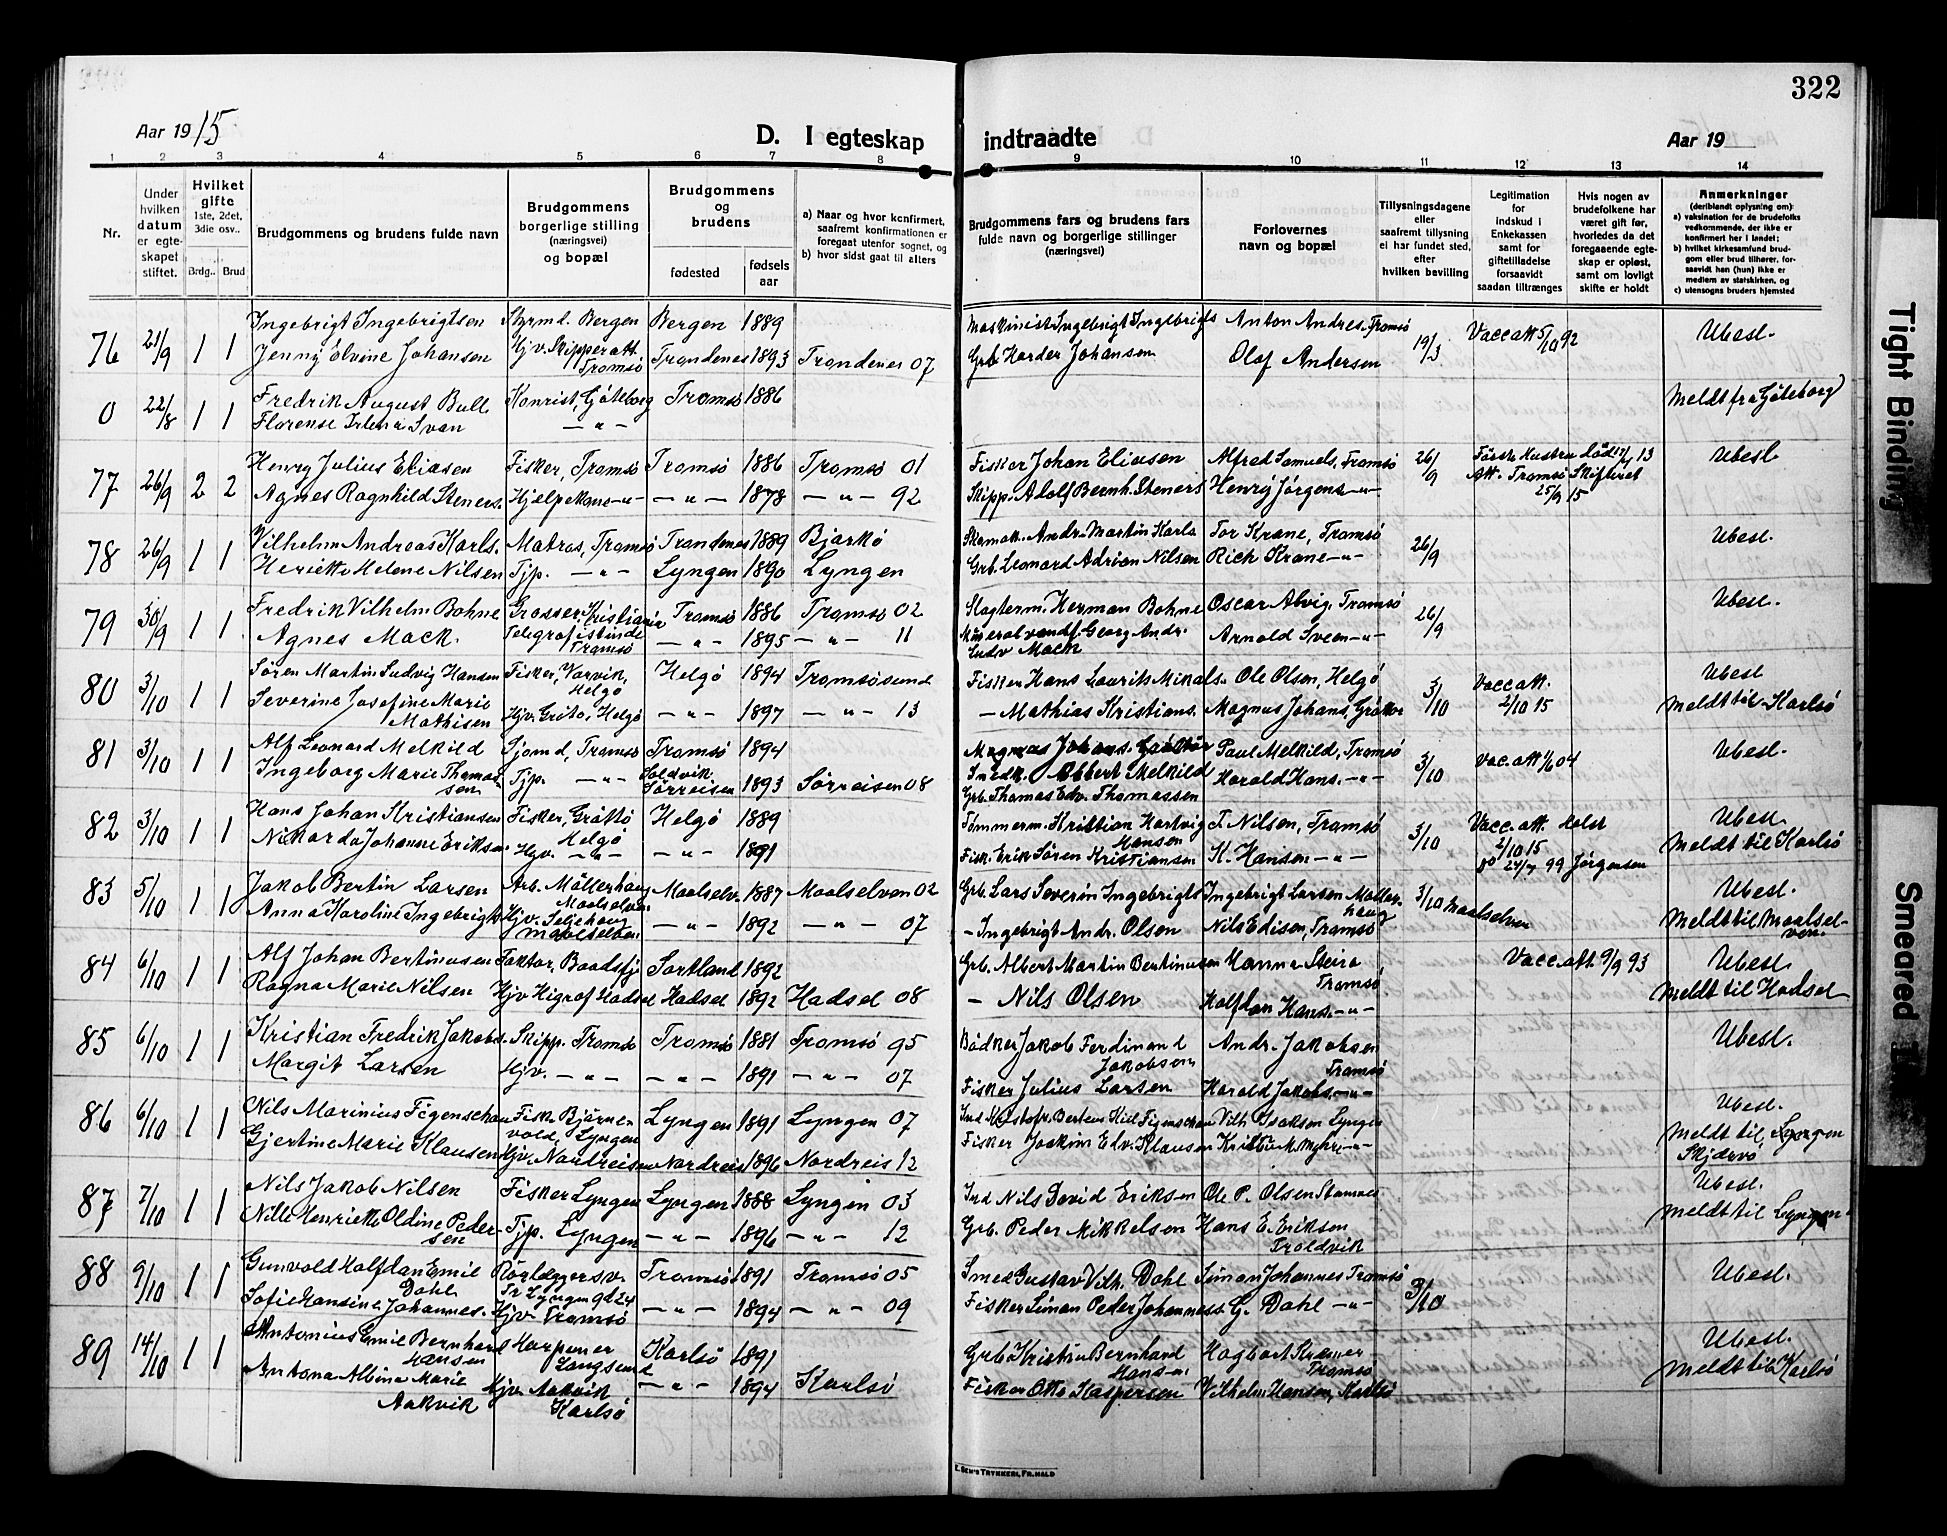 322
Aar 1915
D. I egteskap indtraadte
Aar 19
1 2 3 4 5 6 7 8 9 10 11 12 13 14
Nr.
Under hvilken datum er egteskapet stiftet.
Hvilket gifte 1ste, 2det, 3die osv..
Brdg.. Brud
Brudgommens og brudens fulde navn
Brudgommens borgerlige stilling (næringsvei) og bopæl
Brudgommens og brudens
fødested
fødselsaar
a) Naar og hvor konfirmert, saafremt konfirmationen er foregaat utenfor sognet, og
b) hvor sidst gaat til alters
Brudgommens fars og brudens fars fulde navn og borgerlige stillinger (næringsvei)
Forlovernes navn og bopæl
Tillysningsdagene eller saafremt tillysning ei har fundet sted, efter hvilken bevilling
Legitimation for indskud i Enkekassen samt for giftetilladelse forsaavidt saadan tiltrænges
Hvis nogen av brudefolkene har været gift før, hvorledes da det foregaaende egteskap er opløst, samt om lovligt skifte er holdt
Anmerkninger (deriblandt oplysning om):
a) vaksination for de brudefolks vedkommende, der ikke er konfirmert her i landet;
b) hvilket kirkesamfund brudgom eller brud tilhører, forsaavidt han (hun) ikke er medlem av statskirken, og
c) utensogns bruders hjemsted
76 21/9 1 1 Ingebrigt Ingebrigtsen Styrmd. Bergen Bergen 1889 Maskinist Ingebrigt Ingebrigts Anton Andres. Tromsö 19/3 Vacc att 5/10 92 Ubesl.
Jenny Elvine Johansen Hjv. Skipperatt. Tromsö Trondenes 1893 Trondenes 07 Grb Harder Johansen Olaf Andersen
0 22/8 1 1 Fredrik August Bull Göteborg Tromsö 1886 Meldt fra Göteborg
Florense Svan — " —
77 26/9 2 2 Henry Julius Eliasen Fisker, Tromsö Tromsö 1886 Tromsö 01 Fisker Johan Eliasen Alfred Samuels, Tromsö 26/9 Første Hustru död 13 Ubesl
Agnes Ragnhild Steners. — " — 1878 — " — 92 Skipp. Adolf Bernh. Steners Henry Jörgens — " — Att. Tromsö Skifteret 25/9 15
78 26/9 1 1 Vilhelm Andreas Karls. Matros, Tromsö Trondenes 1889 Bjarkö Andr. Martin Karls Tor Krane, Tromsö 26/9 Ubesl.
Henette Helene Nilsen Tjp. — " — Lyngen 1890 Lyngen Grb. Leonard Adrian Nilsen Rich Krane — " —
79 30/9 1 1 Fredrik Vilhelm Bohne Grosser, Kristiania Tromsö 1886 Tromsö 02 Slagterm. Herman Bohne Oscar Alvig, Tromsö 26/9 Ubesl.
Agnes Mack. Telegrafistinde Tromsö — " — 1895 — " — 11 Mineralvandf. Georg Andr. Ludv Mack Arnold Sveen — " —
80 3/10 1 1 Sören Martin Ludvig Hansen Fisker, Helgö Helgö 1894 Tromsösund Fisker Hans Laurits Mikals. Ole Olsen, Helgö 3/10 Vacc att. 2/10 15 Ubesl
Severine Josefine Marie Mathisen Hjv. Gröto, Helgö — " — 1897 — " — 13 — Mathias Kristians. Magnus Johans, Meldt til Karlsö
81 3/10 1 1 Alf Leonard Melkild Tromsö Tromsö 1894 Magnus Johans. Paul Melkild, Tromsö 3/10 Vac. att 1/6 04 Ubesl.
Ingeborg Marie Thomassen Tjp. — " — Sörreisen 1893 Sörreisen 08 Snedk. Melkild Harald Hans. — " —
Grb. Thomas Edv. Thomassen
82 3/10 1 1 Hans Johan Kristiansen Fisker, Helgö Helgö 1889 Tömmerm. Kristian Hartvig Hansen T. Nilsen, Tromsö 3/10 Vacc. att. Holst 2/10 15 Ubesl.
Nikarda Johanne Eriksen Hjv. — " — — " — 1891 Fisk. Erik Sören Kristiansen K. Hansen — " — do 24/7 99 Jörgensen Meldt til Karlsö
83 5/10 1 1 Jakob Bertin Larsen Arb. Möllerhaug Maalselven Maalselv. 1887 Maalselven 02 Grb. Lars Severin Ingebrigts Ingebrigt Larsen Möllerhaug 3/10 Maalselven Ubesl.
Anna Karoline Ingebrigts. Hjv. Maalselven — " — 1892 — " — 07 — Ingebrigt Andr. Olsen Nils Edisen, Tromsö Meldt til Maalselven
84 6/10 1 1 Alf Johan Bertinusen Faktor, Baadsfj Sortland 1892 Grb. Albert Martin Bertinusen Hanna Steiro Tromsö Vacc. att. 9/9 93 Ubesl.
Ragna Marie Nilsen Hjv Higrof Hadsel Hadsel 1892 Hadsel 08 — Nils Olsen Halfdan Hans. — " — Meldt til Hadsel
85 6/10 1 1 Kristian Fredrik Jakobs. Skipp. Tromsö Tromsö 1881 Tromsö 95 Bödker Jakob Ferdinand Jakobsen Andr. Jakobsen Tromsö Ubesl.
Margit Larsen Hjv. — " — — " — 1891 — " — 07 Fisker Julius Larsen Harald Jakobs. — " —
86 6/10 1 1 Nils Marinius Figenschau Fisk. Björnevold, Lyngen Lyngen 1891 Lyngen 07 Figenschau Vilh. Isaksen Lyngen Ubesl.
Gjertine Marie Klausen Hjv. Nordreisen Nordreis 1896 Nordreis 12 Fisker Joakim Edv. Klausen Kristine M. Myhre — " — Meldt til, Lyngen Skjærvö
87 7/10 1 1 Nils Jakob Nilsen Fisker Lyngen Lyngen 1888 Lyngen 03 Ind Nils David Eriksen Ole P. Olsen Stamnes Ubesl.
Nille Henriette Oldine Pedersen Tjp. Lyngen — " — 1896 — " — 12 Grb. Peder Mikkelsen Hans E. Eriksen Troldvik Meldt til Lyngen
88 9/10 1 1 Gunvold Halfdan Emil Dahl Rörlæggersv. Tr Lyngen gd 24 Tromsö 1891 Tromsö 05 Smed Gustav Vilh. Dahl Simon Johannes Tromsö 3/10 Ubesl.
Sofie Hansine Johannes. Hjv. Tromsö — " — 1894 — " — 09 Fisker Simon Peder Johanness G. Dahl — " —
89 14/10 1 1 Antonius Emil Bernhard Hansen Harpuner Langsund Karlsö 1891 Grb Kristin Bernhard Hansen Hagbart Kræmer Tromsö Ubesl.
Antona Albine Marie Aakvik Hjv. Aakvik Karlsö — " — 1894 Karlsö Fisker Otto Kaspersen Vilhelm Hansen, Karlsö Meldt til Karlsö
E. SEM'S TRYKKERI, FR.HALD
Tight Binding
Smeared